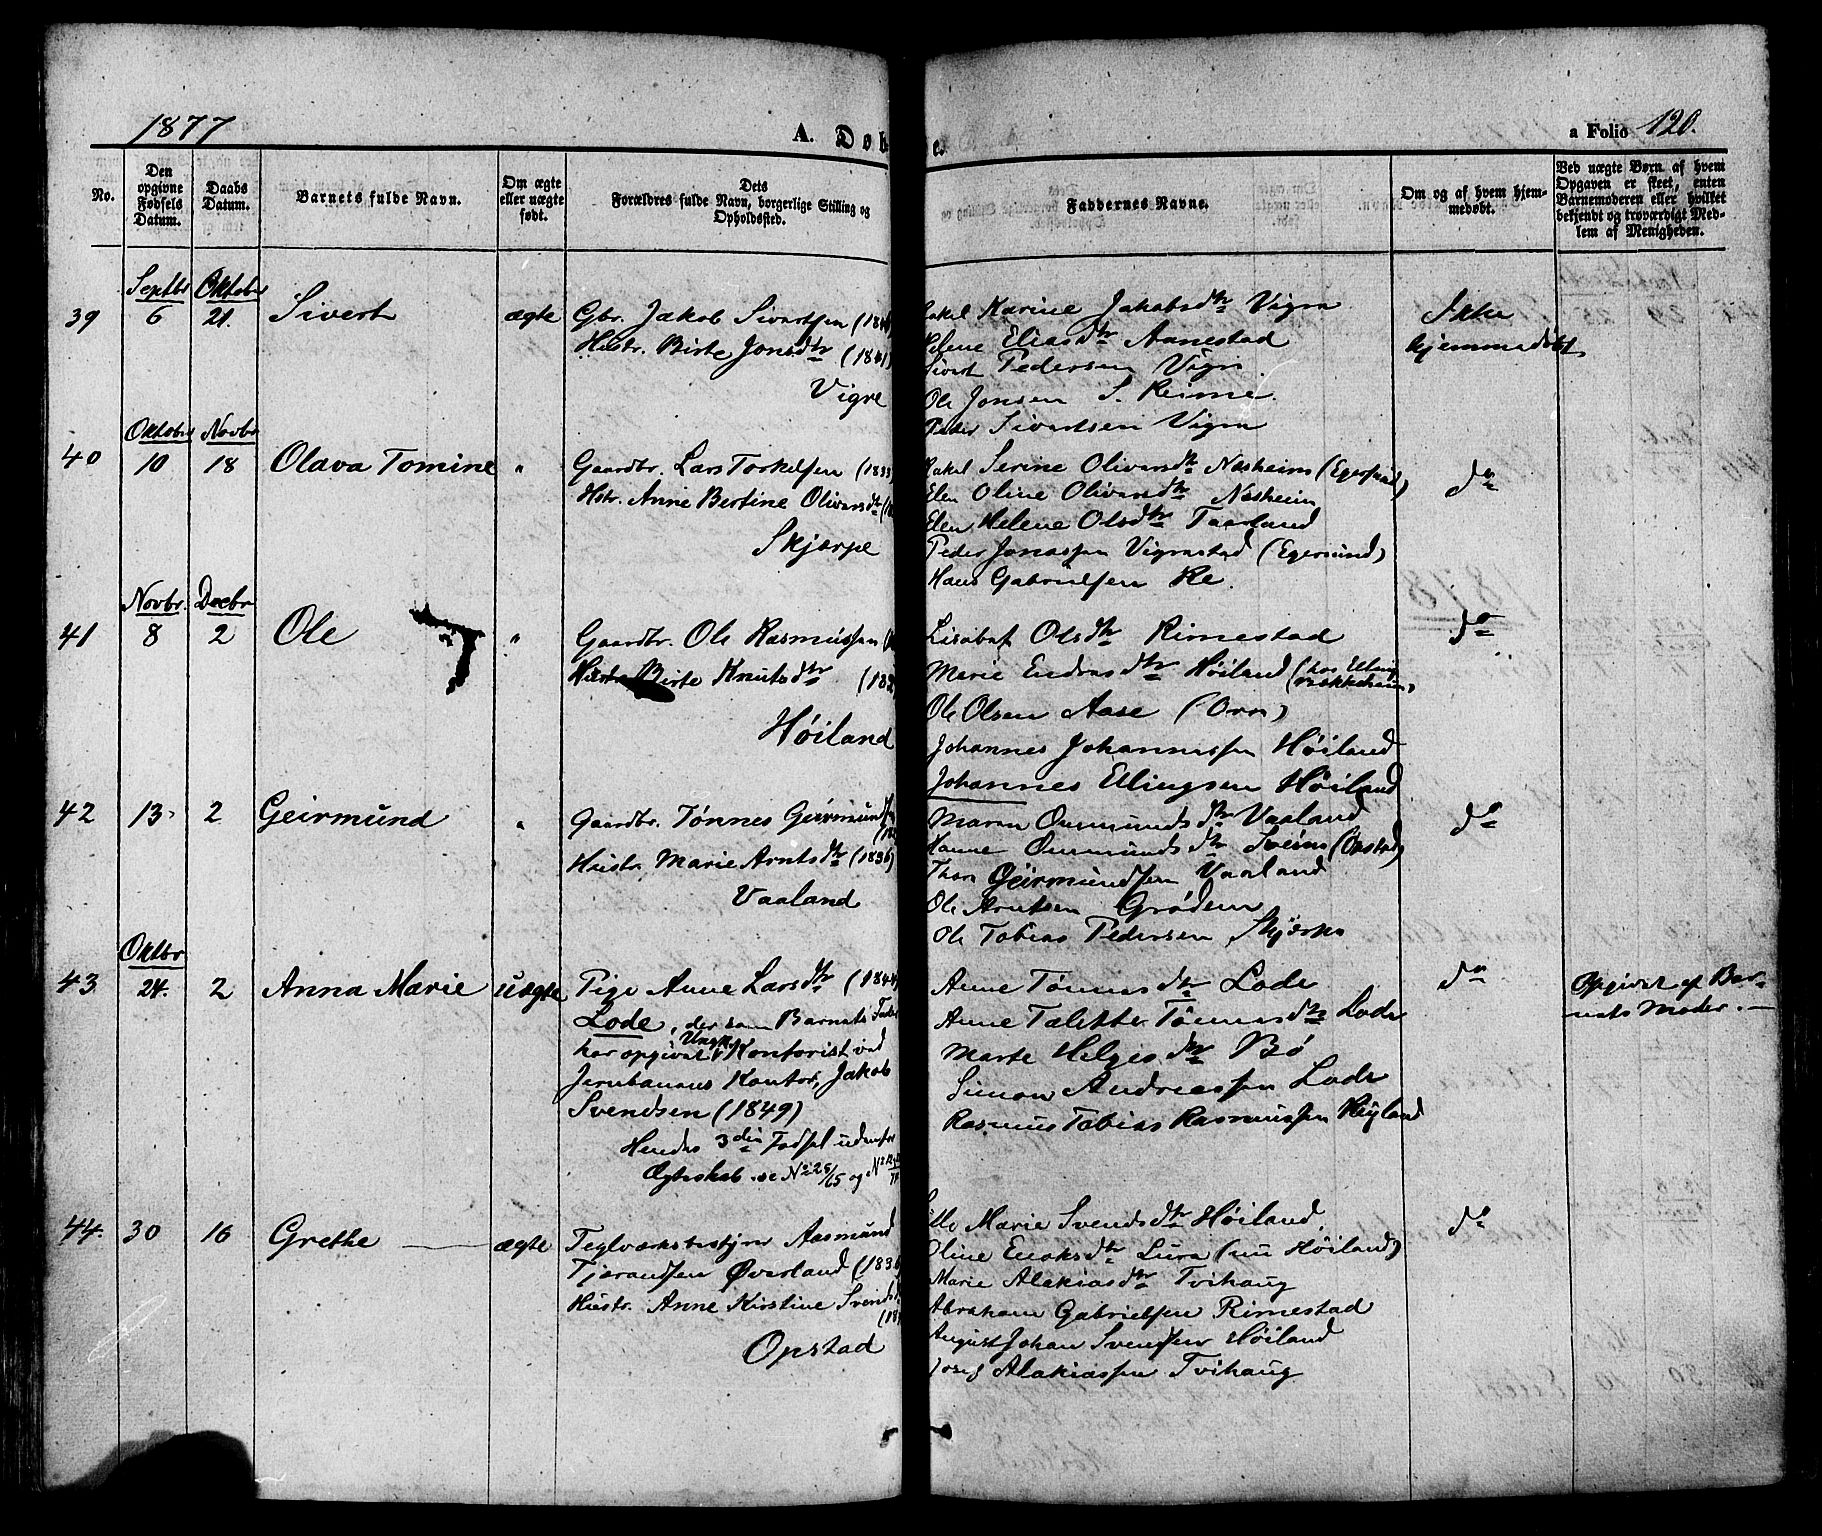 1877
A. Døb
e.
a Folio 120.
No.
Den opgivne Fødsels Datum.
Daabs Datum.
Barnets fulde Navn.
Om ægte eller uægte født.
Dets Forældres fulde Navn, borgerlige Stilling og Opholdssted.
Faddernes Navne.
Om og af hvem hjemmedøbt.
Ved uægte Børn, af hvem Opgaven er skeet, enten Barnemoderen eller hvilket bekjendt og troværdigt Medlem af Menigheden.
Septbr Oktober
39 6 21. Sivert ægte
Gbr. Jakob Sivertsen
Hustr. Birte Jonsdtr
Vigre
Rakel Karine Jakobsdtr Vigre
Helene Eliasdtr Aanestad
Sivert Pedersen Vigre
Ole Jonsen S. Reime
Peder Sivertsen Vigre
Ikke
hjemmedøbt
Oktober Novbr
40 10 18 Olava Tomine "
Gaardbr. Lars Torkelsen (1833
Hstr. Anne Bertine Oliversdtr
Skjærpe
Rakel Serine Oliversdtr Næsheim (Egersund)
Elen Oline Oliversdtr Næsheim
Elen Helene Olsdtr Taarland
Peder Jonassen Vigrestad (Egersund)
Hans Gabrielsen Re.
do
Novbr. Decbr
41 8 2 Ole "
Gaardbr. Ole Rasmussen
Hustr. Birte Knutsdtr
Høiland
Lisabet Olsdtr Rimestad
Marie Endresdtr Høiland (hos Elling
Ole Olsen Aase (Orre)
Johannes Johannessen Høiland
Johannes Ellingsen Høiland
do
42 13 2 Geirmund "
Gaardbr. Tønnes Geirmundsen
Hustr. Marie Arntsdtr (1836)
Vaaland
Maren Ommundsdtr Vaaland
Hanne Ommundsdtr Sveins (Opstad)
Thore Geirmundsen Vaaland
Ole Arntsen Grødem
Ole Tobias Pedersen Skjærpe
do
Oktbr
43 24. 2 Anna Marie uægte
Pige Anne Larsdtr (1844)
Lode, der som Barnets Fader
har opgivet Ungk. Kontorist ved
Jernbanens Kontor, Jakob
Svendsen (1849)
Hendes 3die Fødsel udenfor
Ægteskab. se No 22 /65 og No
Anne Tønnesdtr Lode
Anne Talette Tønnesdtr Lode
Marte Helgesdtr Bø
Simon Andreassen Lode
Rasmus Tobias Rasmussen Høyland
do
Opgivet af Bar-
nets Moder. —
44. 30 16 Grethe ægte
Teglværksbestyrer Aasmund
Tjerandsen Øverland (1836
Hustr. Anne Kirstine Svendsd
Opstad
Marie Svendsdtr Høiland,
Oline Enoksdtr Lura (nu Høiland)
Marie Alakiasdtr Tvihaug
Abraham Gabrielsen Rimestad
August Johan Svendsen Høiland
Josef Alakiassen Tvihaug
do